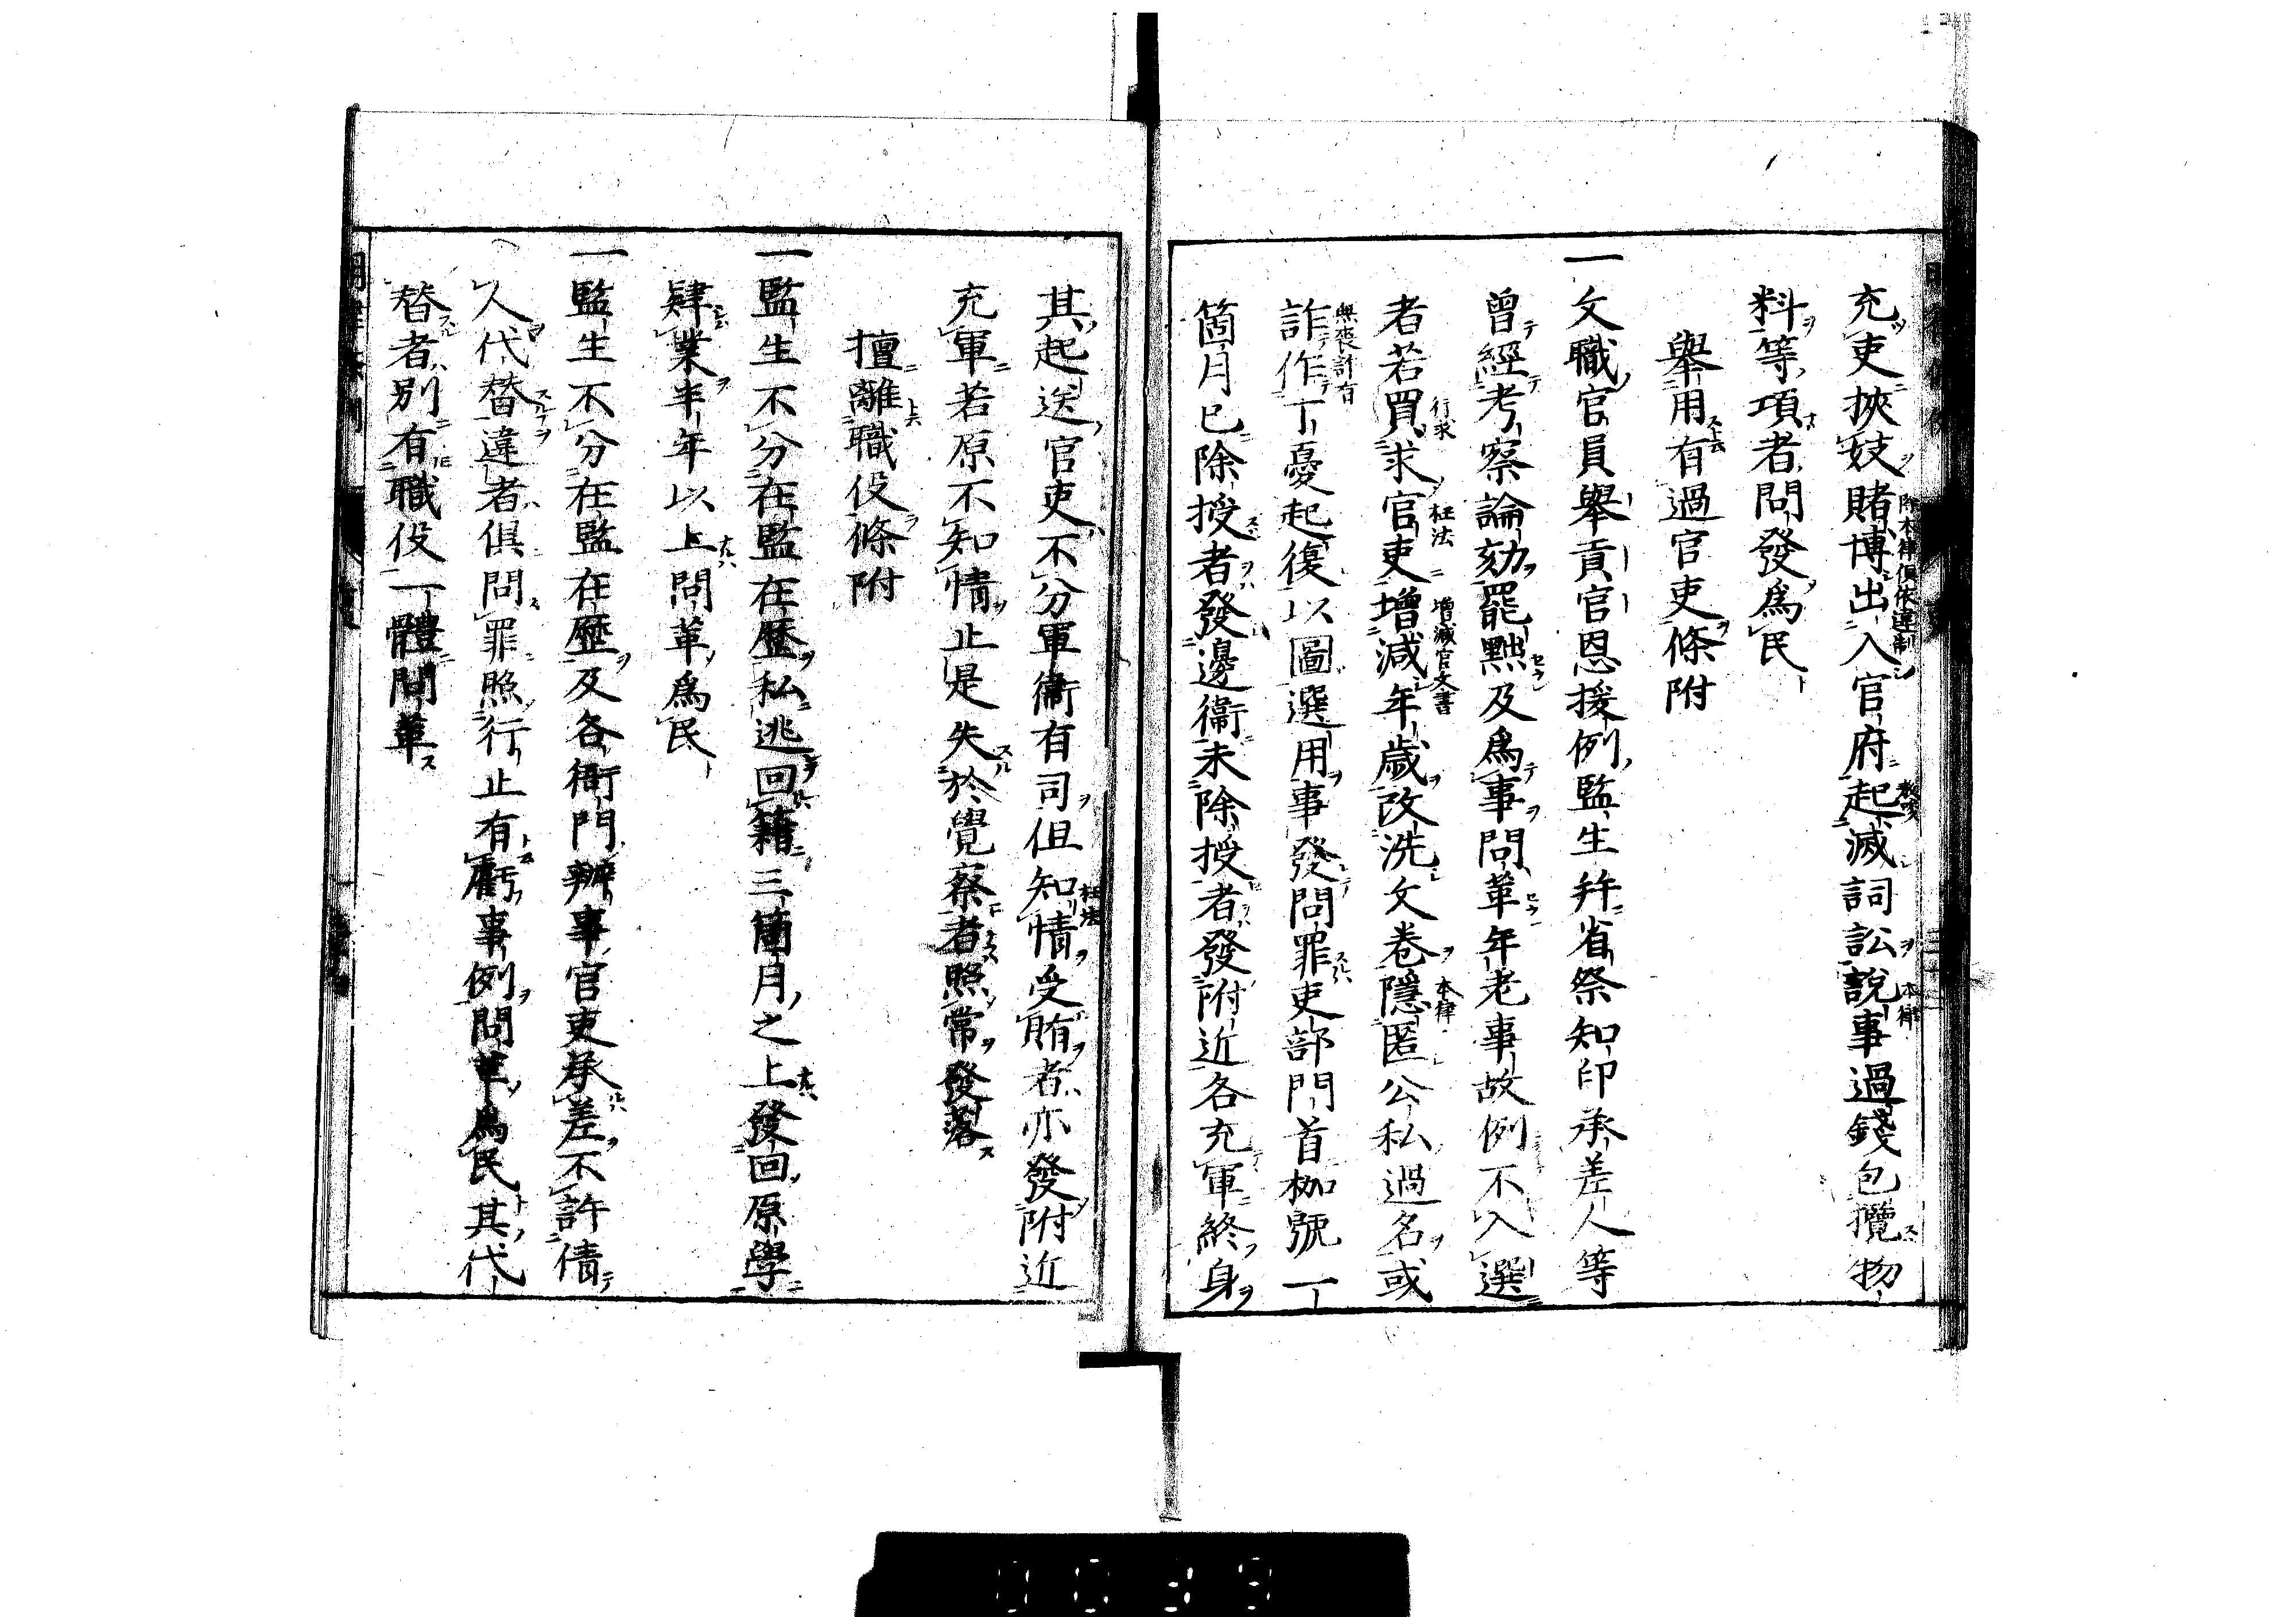 充吏挾妓賭博出入官府起滅詞訟說事過錢包攬物
料等項者問發爲民
舉用有過官吏條附
一文職官員舉貢官恩援例監生幷省祭知印承差人等
曾經考察論劾罷黜及爲事問革年老事故例不入選
者若買求官吏增減年歲改洗文卷隱匿公私過名或
詐作丁憂起復以圖選用事發問罪吏部門首枷號一
箇月已除授者發邊衞未除授者發附近各充軍終身
其起送官吏不分軍衞有司但知情受賄者亦發附近
充軍若原不知情止是失於覺察者照常發落
擅離職役條附
一監生不分在監在歷私逃回籍三箇月之上發回原學
肄業半年以上問革爲民
一監生不分在監在歷及各衙門辦事官吏承差不許倩
人代替違者俱問罪照行止有虧事例問革爲民其代
替者別有職役一體問革